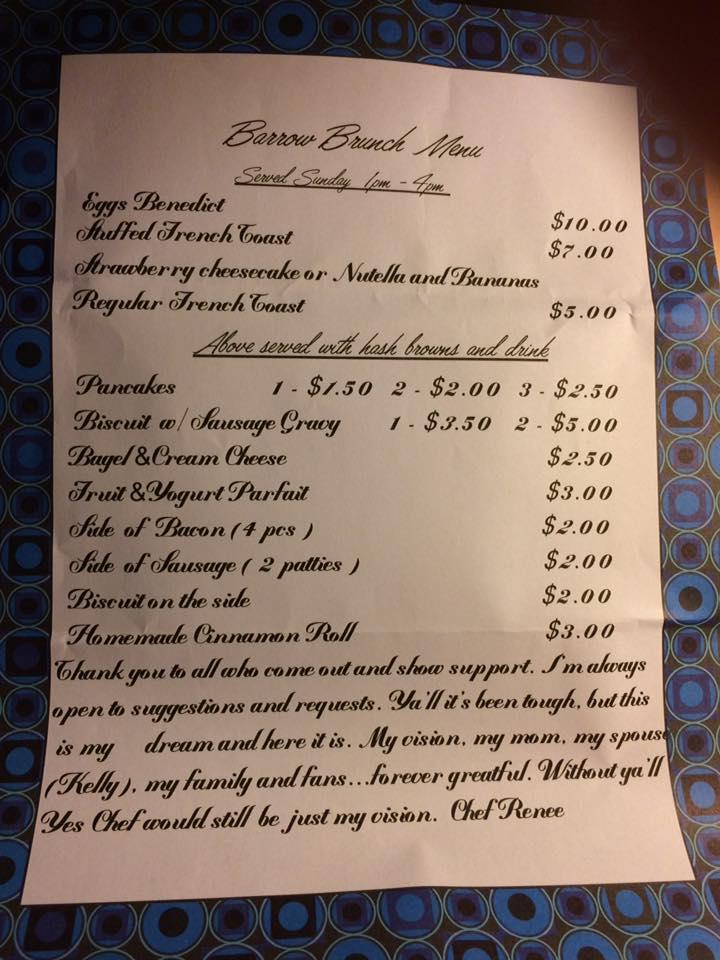 Barrow Brunch Menu
Served Sunday 1pm - 4pm
Eggs Benedict $10.00
Stuffed French Toast $7.00
Strawberry cheesecake or Nutella and Bananas
Regular French Toast $5.00
Above served with hash browns and drink
Pancakes 1 - $1.50 2 - $2.00 3 - $2.50
Biscuit w/ Sausage Gravy 1 - $3.50 2 - $5.00
Bagel & Cream Cheese $2.50
Fruit & Yogurt Parfait $3.00
Side of Bacon ( 4 pcs ) $2.00
Side of Sausage ( 2 patties ) $2.00
Biscuit on the side $2.00
Homemade Cinnamon Roll $3.00
Thank you to all who come out and show support. I'm always
open to suggestions and requests. Ya'll it's been tough, but this
is my dream and here it is. My vision, my mom, my spouse
(Kelly), my family and fans...forever greatful. Without ya'll
Yes Chef would still be just my vision. Chef Renee